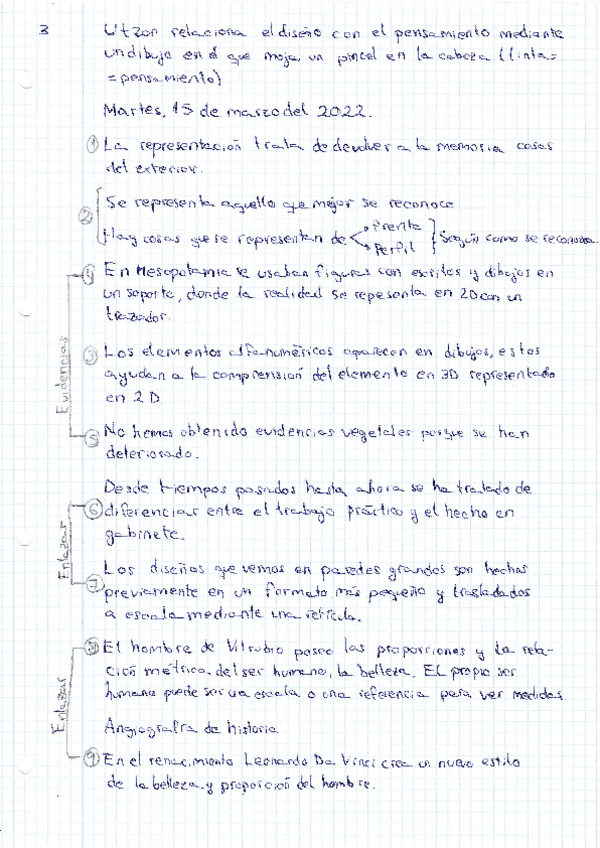 3 Utzon relaciona el diseño con el pensamiento mediante
un dibujo en el que moja un pincel en la cabeza (tinta=
=pensamiento)
Martes, 15 de marzo del 2022.
① La representación trata de devolver a la memoria cosas
del exterior.
② Se representa aquello que mejor se reconoce
Hay cosas que se representan de Frente Perfil Según como se reconozca.
④ En Mesopotamia se usaban figuras con escritos y dibujos en
un soporte, donde la realidad se repesenta en 2D con un
trazador.
Evidencias
③ Los elementos alfanuméricos aparecen en dibujos, estos
ayudan a la comprensión del elemento en 3D representado
en 2D.
⑤ No hemos obtenido evidencias vegetales porque se han
deteriorado.
Desde tiempos pasados hasta ahora se ha tratado de
⑥ diferenciar entre el trabajo práctico y el hecho en
gabinete.
Enlazar
Los diseños que vemos en paredes grandes son hechas
⑦ previamente en un formato más pequeño y trasladados
a escala mediante una retícula.
⑧ El hombre de Vitrubio posee las proporciones y la rela-
ción métrica del ser humano, la belleza. El propio ser
humano puede ser una escala o una referencia para ver medidas
Enlazar
Angiografía de historia
⑨ En el renacimiento Leonardo Da Vinci crea un nuevo estilo
de la belleza y proporción del hombre.